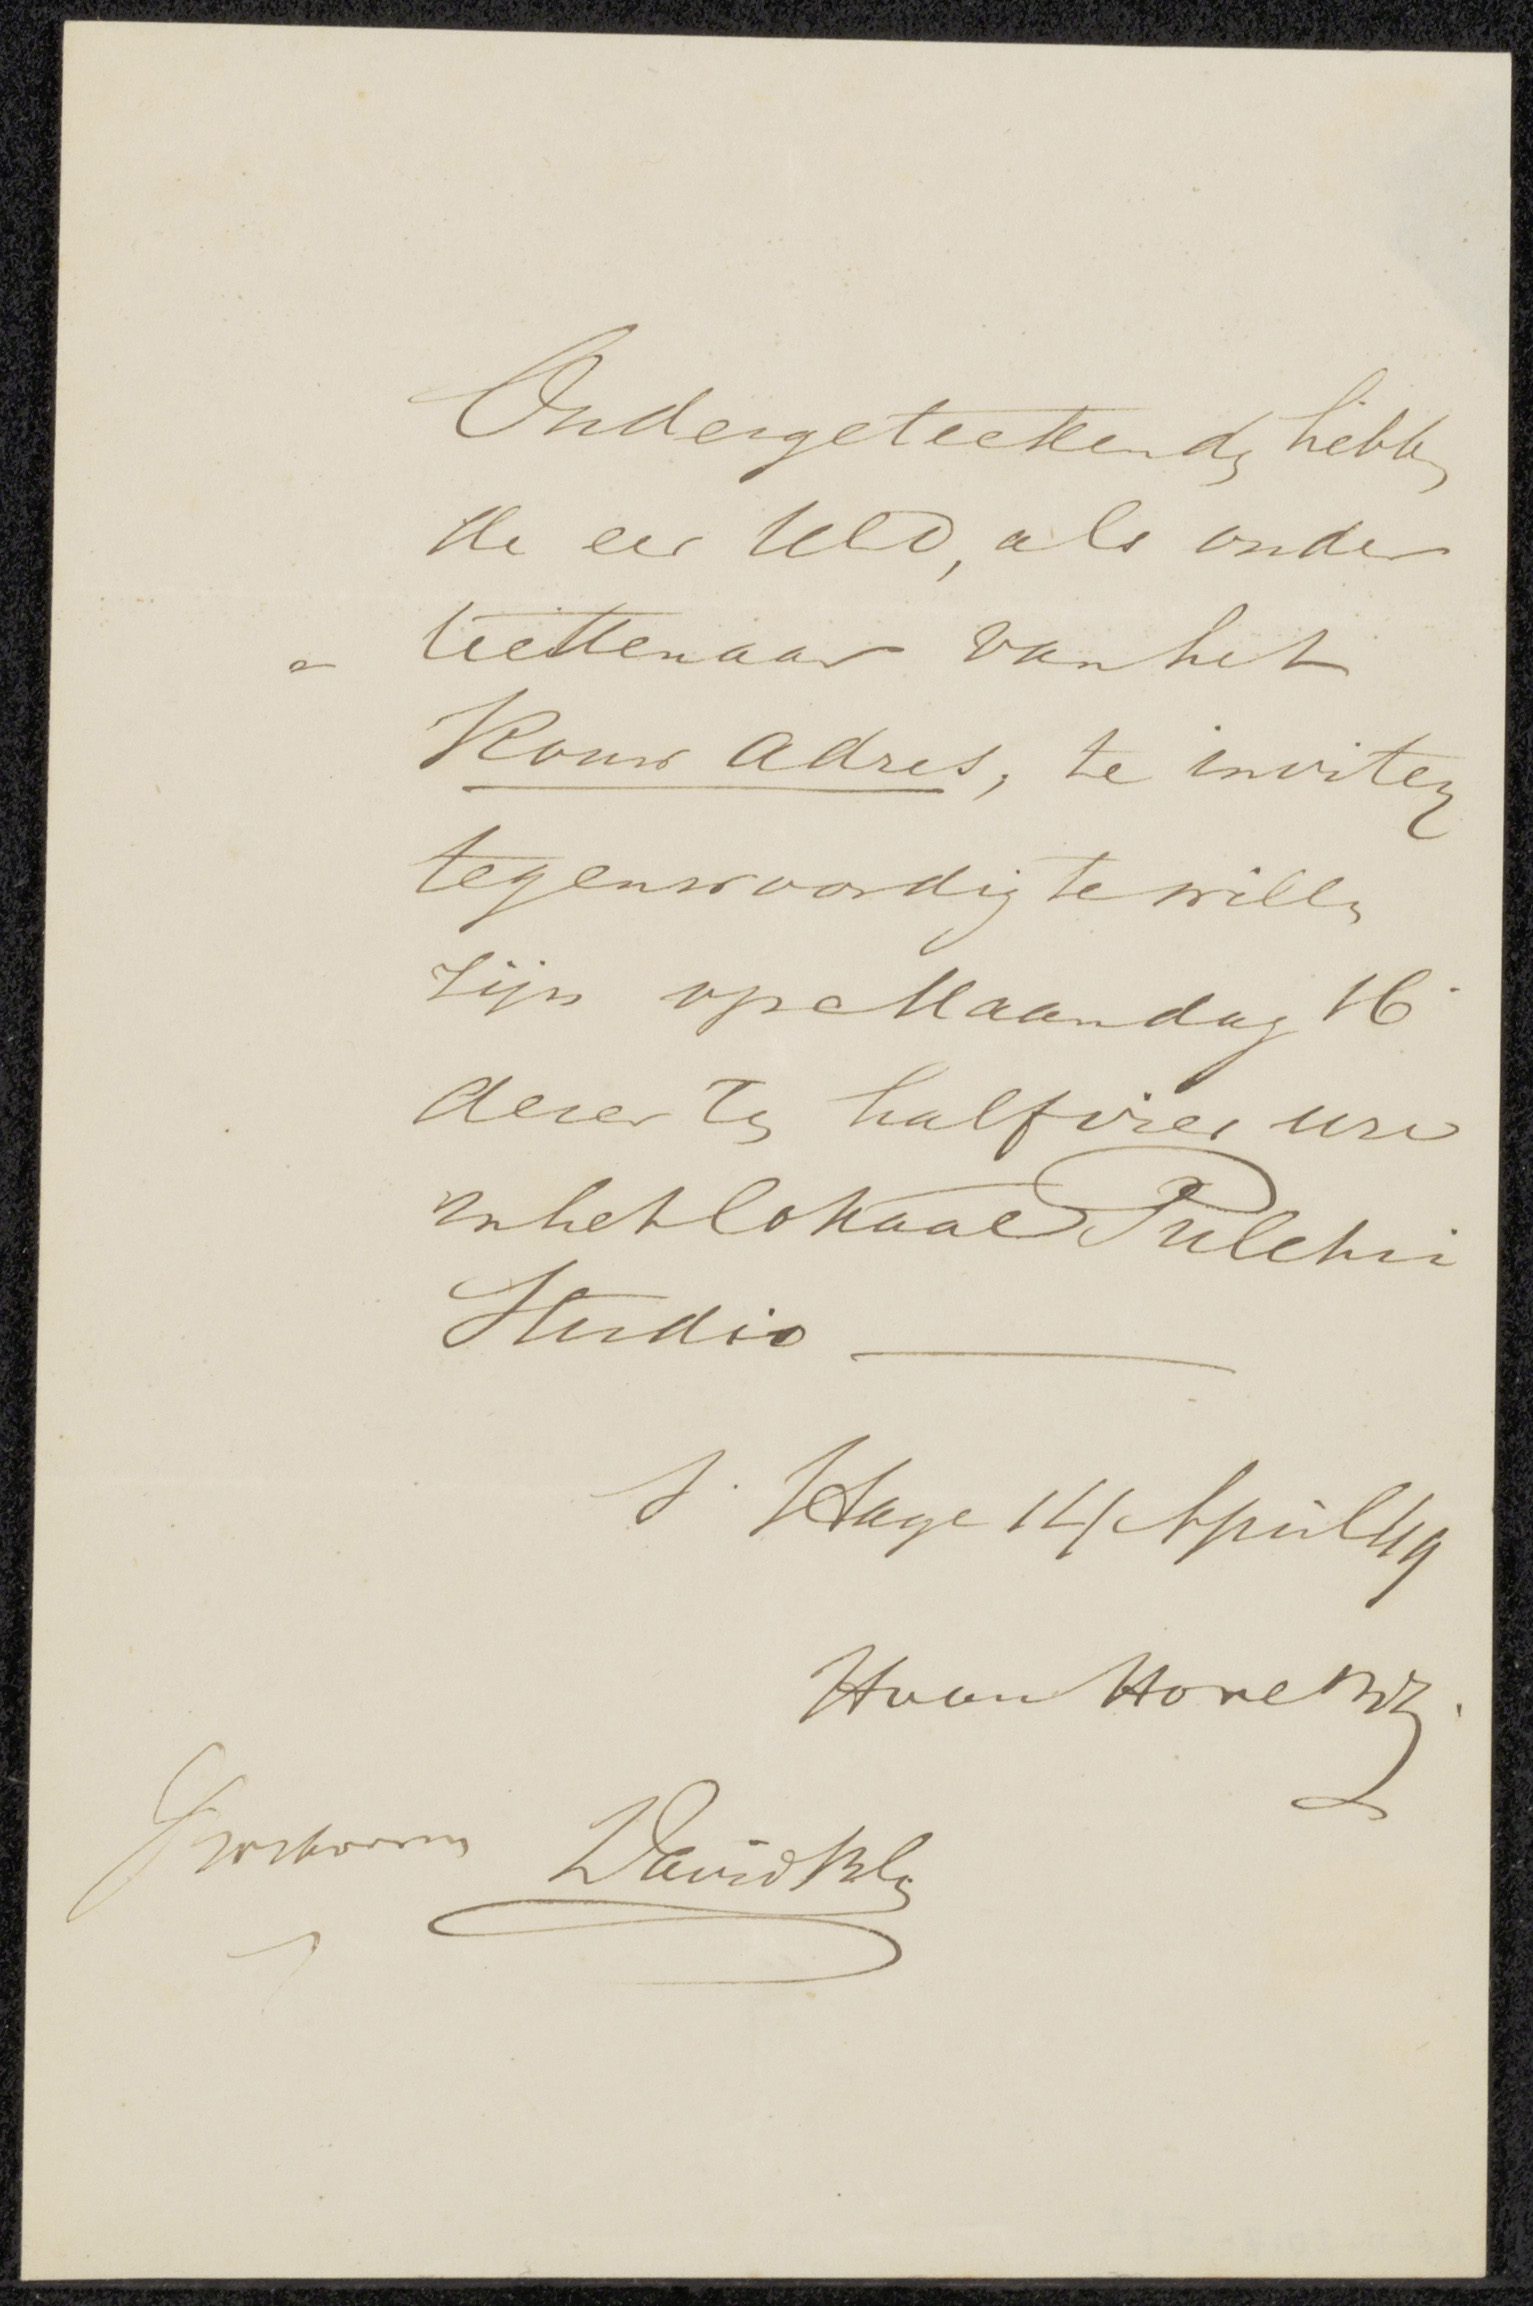 Ondergeteekende hebben
de eer UEd, als onder
teekenaar van het
Rouw adres, te inviteren
tegenwoordig te willen
zijn op Maandag 16
dezer ten half vier ure
in het lokaal Pulchri
Studio
s. Hage 14 April 49
H van Hove Bz.
David Bles